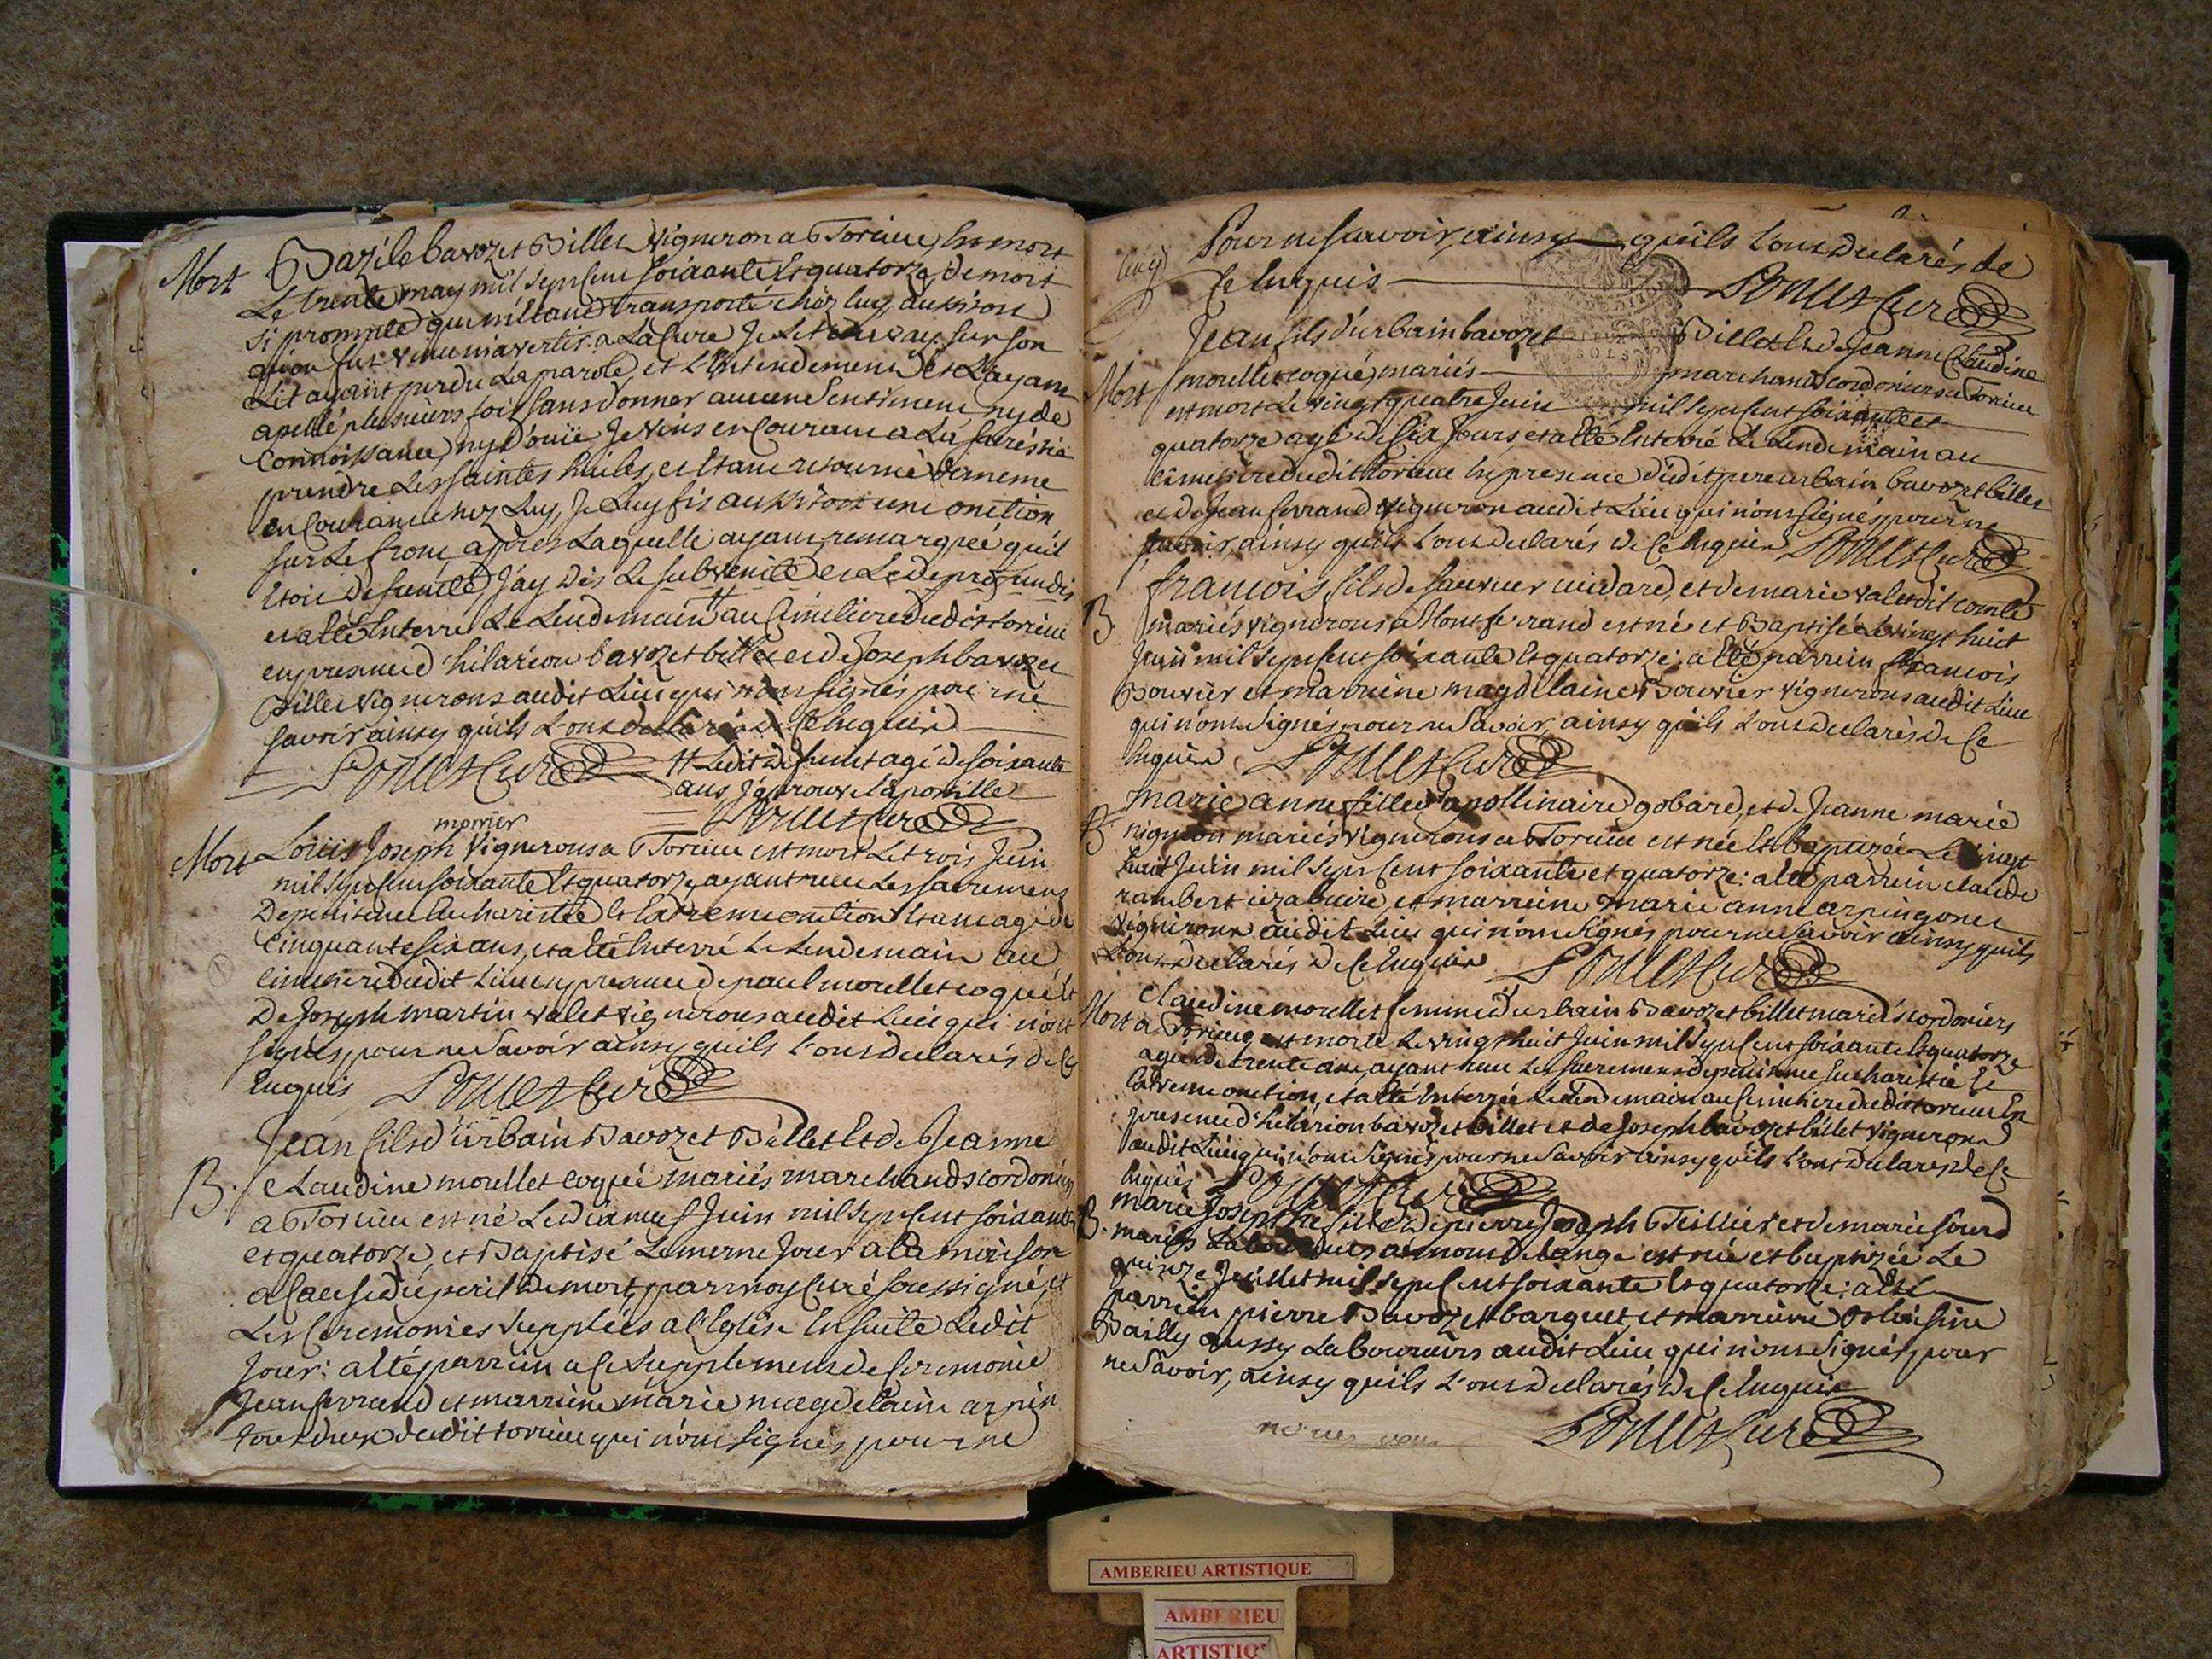 Mort Bazile bavozet Billet vigneron a Torcieu, est mort
Le trente may mil sept cent soixante et quatorze, de mort
si prompte que m'étant transporté chez luy, aussitost
qu'on fut venu m'avertir a La Cure Je Le trouvay sur son
Lit ayant perdu La parole, et L'entendement et L'ayant
apellé plusieurs fois sans donner aucun sentiment ny de
Connoissance, ny d'ouïe Je vins en Courant a La sacristie
prendre Les saintes huiles, et étant retourné de meme
en Courant chez Luy, Je Luy fis aussitost une onction
sur Le front, après Laquelle ayant remarqué qu'il
étoit defunté J'ay dis Le subvenite et Le de profundis
et a été Enterré Le Lendemain # au Cimetiere dudit torcieu
en presence d'hilarion bavozet billet et de Joseph bavozet
Billet vignerons audit Lieu qui n'ont signés pour ne
savoir ainsy qu'ils L'ont declarés de Ce Enquis
Ponset Curé # Ledit defunt agé de soixante
ans J'aprouve L'apostille
Ponset Curé
monier
Mort Louis Joseph Vignerons a Torcieu est mort Le trois Juin
mil sept cent soixante et quatorze, ayant recu Les sacremens
De penitence Eucharistie et Extreme onction étant agé de
Cinquante six ans, et a été Enterré Le Lendemain au
Cimetiere dudit Lieu en presence de paul morellet coqué et
De Joseph martin valet vignerons audit Lieu qui n'ont
signés pour ne savoir ainsy qu'ils L'ont declarés de Ce
Enquis Ponset Curé
Jean fils d'urbain Bavozet Billet et de Jeanne
B. Claudine morellet coqué mariés marchands cordoniers
a Torcieu est né Le dix neuf Juin mil sept Cent soixante
et quatorze, et Baptisé Le meme Jour a La maison
a Cause du peril de mort, par moy Curé soussigné, et
Les Ceremonies Suppléés a L'Eglise Ensuite Ledit
Jour: a été parrein a Ce Supplement de Ceremonie
Jean ferrand et marreine marie magdelaine arpin
tous deux dudit torcieu qui n'ont signés pour ne
2.
Pour ne savoir, ainsy qu'ils L'ont declarés de
Ce Enquis Ponset Curé
Jean fils d'urbain bavozet Billet et de Jeanne Claudine
Mort morellet coqué, mariés marchands cordoniers a Torcieu
est mort Le vingt quatre Juin mil sept Cent soixante et
quatorze agé de six Jours, et a été Enterré Le Lendemain au
Cimetiere dudit torcieu En presence dudit pere urbain bavozet billet
et de Jean ferrand vigneron audit Lieu qui n'ont signés pour ne
savoir, ainsy qu'ils L'ont declarés de Ce Enquis Ponset Curé
francois fils de sauveur cuidard, et de marie valet dit comte
B mariés vignerons a Montferrand est né et Baptisé Le vingt huit
Juin mil sept Cent soixante et quatorze; a été parrein francois
Bouvier et marreine magdelaine Bouvier vignerons audit Lieu
qui n'ont signés pour ne savoir, ainsy qu'ils L'ont declarés de Ce
Enquis Ponset Curé
marie anne fille d'apollinaire gobard, et de Jeanne marie
B. mariés vignerons a Torcieu est née et baptizée Le vingt
huit Juin mil sept Cent soixante et quatorze: a été parrein claude
rambert et marreine marie anne arpin
vignerons audit Lieu qui n'ont signés pour ne savoir ainsy qu'ils
L'ont declarés de Ce Enquis Ponset Curé
Claudine morellet femme d'urbain Bavozet billet mariés cordoniers
Mort a Torcieu est morte Le vingt huit Juin mil sept Cent soixante et quatorze
agée de trente ans, ayant recu Les sacremens de penitence Eucharistie et
Extreme onction, et a été Enterrée Le Lendemain au Cimetiere dudit torcieu En
presence d'hilarion bavozet billet et de Joseph bavozet billet vignerons
audit Lieu qui n'ont signés pour ne savoir ainsy qu'ils L'ont declarés de Ce
Enquis Ponset Curé
B. marie Josephte fille de pierre Joseph Teillier et de marie sourd
mariés Laboureurs au mont de Lange est née et baptizée Le
quinze Juillet mil sept Cent soixante et quatorze: a été
parrein pierre Bavozet barquet et marreine
Bailly aussy Laboureurs audit Lieu qui n'ont signés pour
ne savoir, ainsy qu'ils L'ont declarés de Ce Enquis
Ponset Curé
AMBERIEU ARTISTIQUE
AMBERIEU
ARTISTIQ